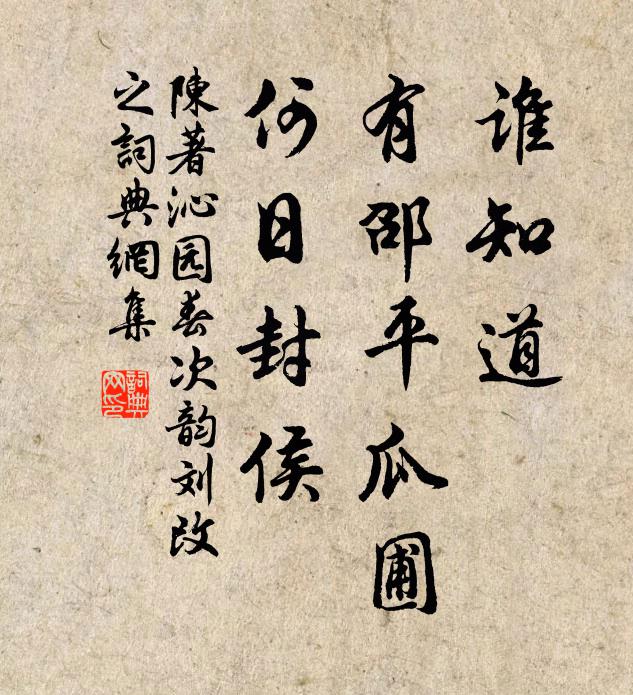 谁知道
有邵平瓜圃
何日封侯
陳著沁园春次韵刘改
之詞典網集
詞典网印